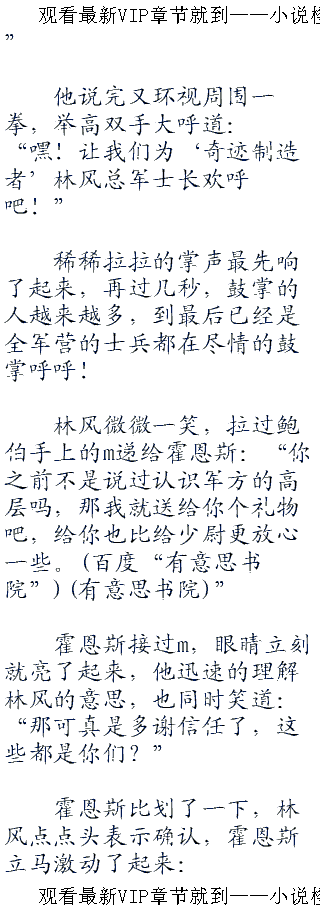 观看最新VIP章节就到——小说检
”
他说完又环视周围一
拳，举高双手大呼道：
“嘿！让我们为‘奇迹制造
者’林风总军士长欢呼
吧！”
稀稀拉拉的掌声最先响
了起来，再过几秒，鼓掌的
人越来越多，到最后已经是
全军营的士兵都在尽情的鼓
掌呼呼！
林风微微一笑，拉过鲍
伯手上的m递给霍恩斯：“你
之前不是说过认识军方的高
层吗，那我就送给你个礼物
吧，给你也比给少尉更放心
一些。(百度“有意思书
院”)(有意思书院)”
霍恩斯接过m，眼睛立刻
就亮了起来，他迅速的理解
林风的意思，也同时笑道：
“那可真是多谢信任了，这
些都是你们？”
霍恩斯比划了一下，林
风点点头表示确认，霍恩斯
立马激动了起来：
观看最新VIP章节就到——小说检